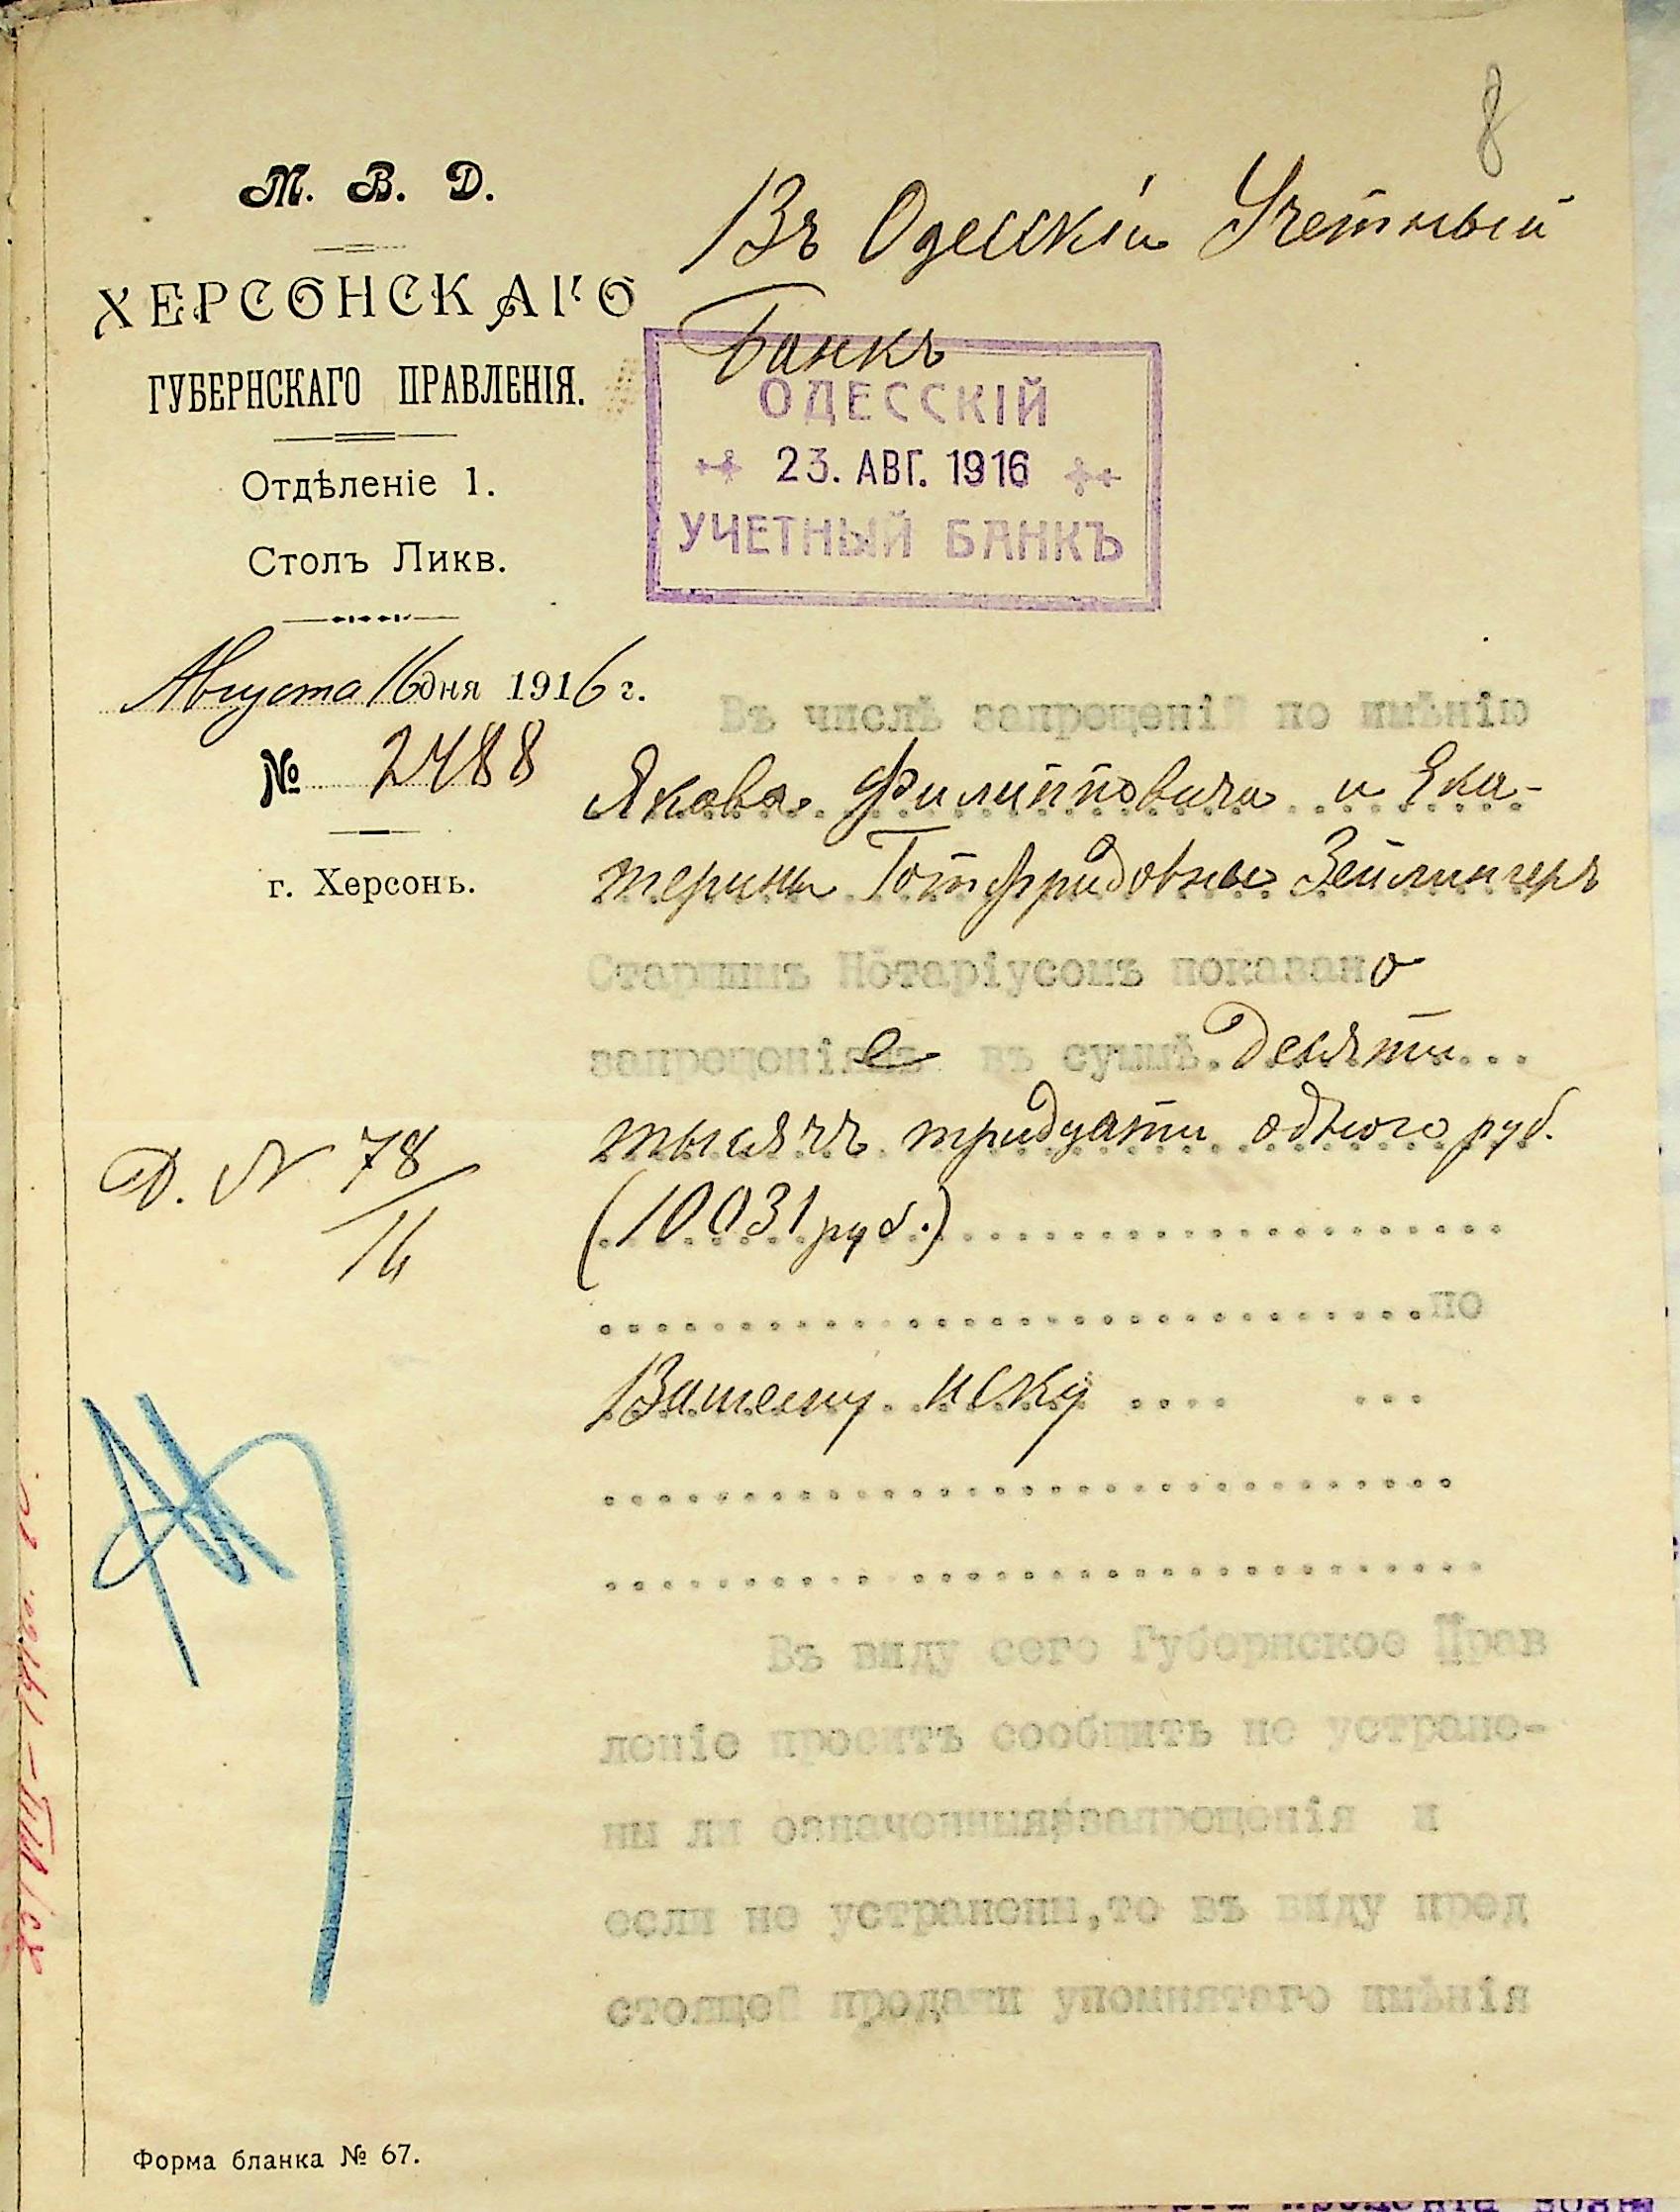 8
М. В. Д.
ХЕРСОНСКАГО
ГУБЕРНСКАГО ПРАВЛЕНІЯ.
Отдѣленіе 1.
Столъ Ликв.
Августа 16 дня 1916 г.
№ 2488
г. Херсонъ.
Д. № 78/16
Въ Одесскій Учетный
Банкъ
ОДЕССКІЙ
23. АВГ. 1916
УЧЕТНЫЙ БАНКЪ
Въ числѣ запрещеній по имѣнію
Якова Филипповича и Ека-
терины Готфридовны Зейлингеръ
Старшимъ Нотаріусомъ показано
запрещеніе въ суммѣ Десяти
тысячъ тридцати одного руб.
(10031 руб.)
по
Вашему иску
Въ виду сего Губернское Прав
леніе проситъ сообщить не устране-
ны ли означенныя запрещенія и
если не устранены, то въ виду пред
стоящей продажи упомянтаго имѣнія
Форма бланка № 67.